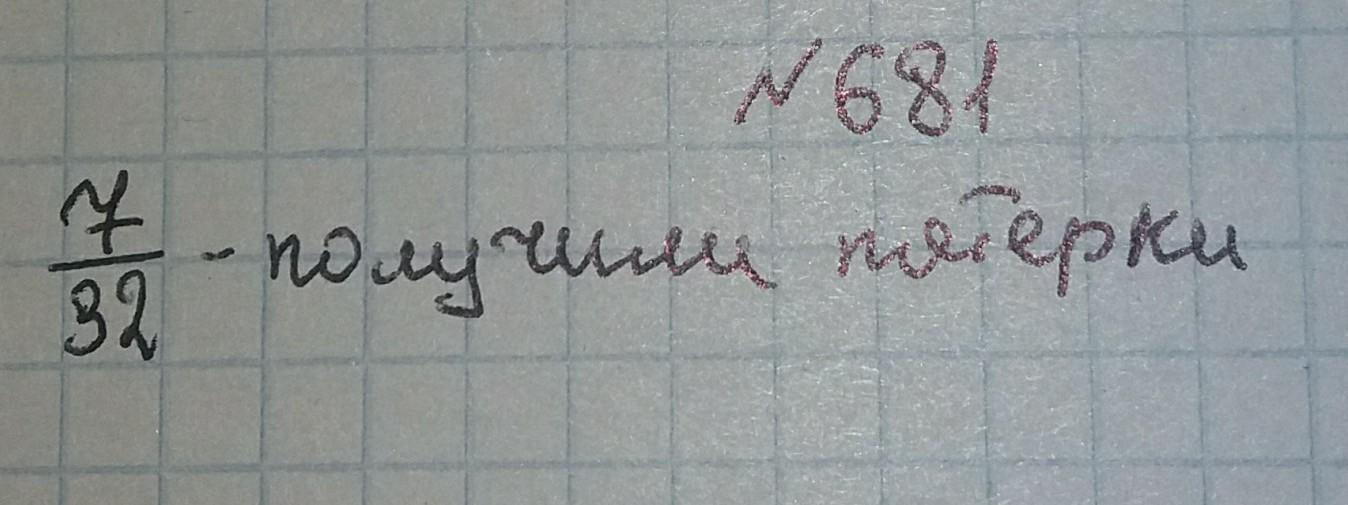 №681
7/32 - получили пятерки